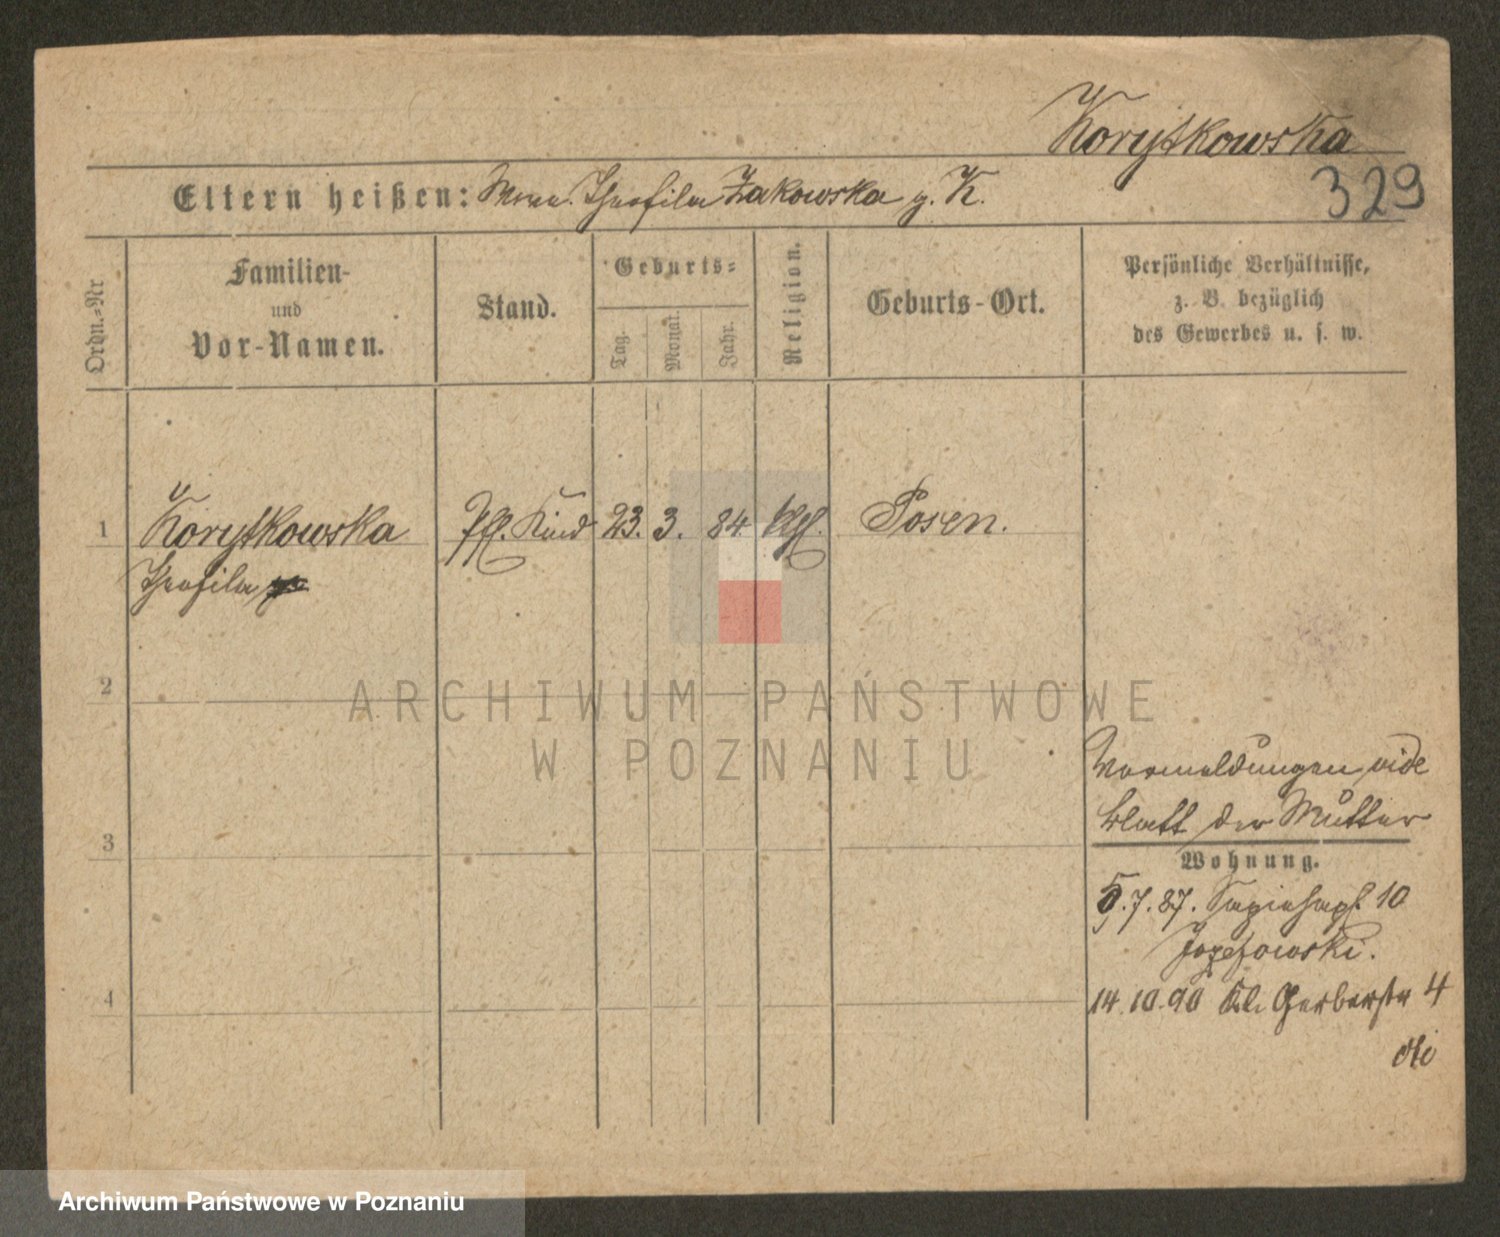 Korytkowska
Eltern heißen: Theofila Zakowska g. K.
329
Ordn.-Nr
Familien-
und
Vor-Namen.
Stand.
Geburts-
Tag.
Monat.
Jahr.
Religion.
Geburts-Ort.
Persönliche Verhältnisse,
z. B. bezüglich
des Gewerbes u. s. w.
1 Korytkowska Pfl. Kind 23. 3. 84 kth. Posen.
Theofila
2
ARCHIWUM PAŃSTWOWE
W POZNANIU
Vormeldungen vide
blatt der Mutter
3
Wohnung.
5.7.87. Sapiehapl. 10
Jozefowski.
4
14.10.90 Kl. Gerberstr 4
Archiwum Państwowe w Poznaniu